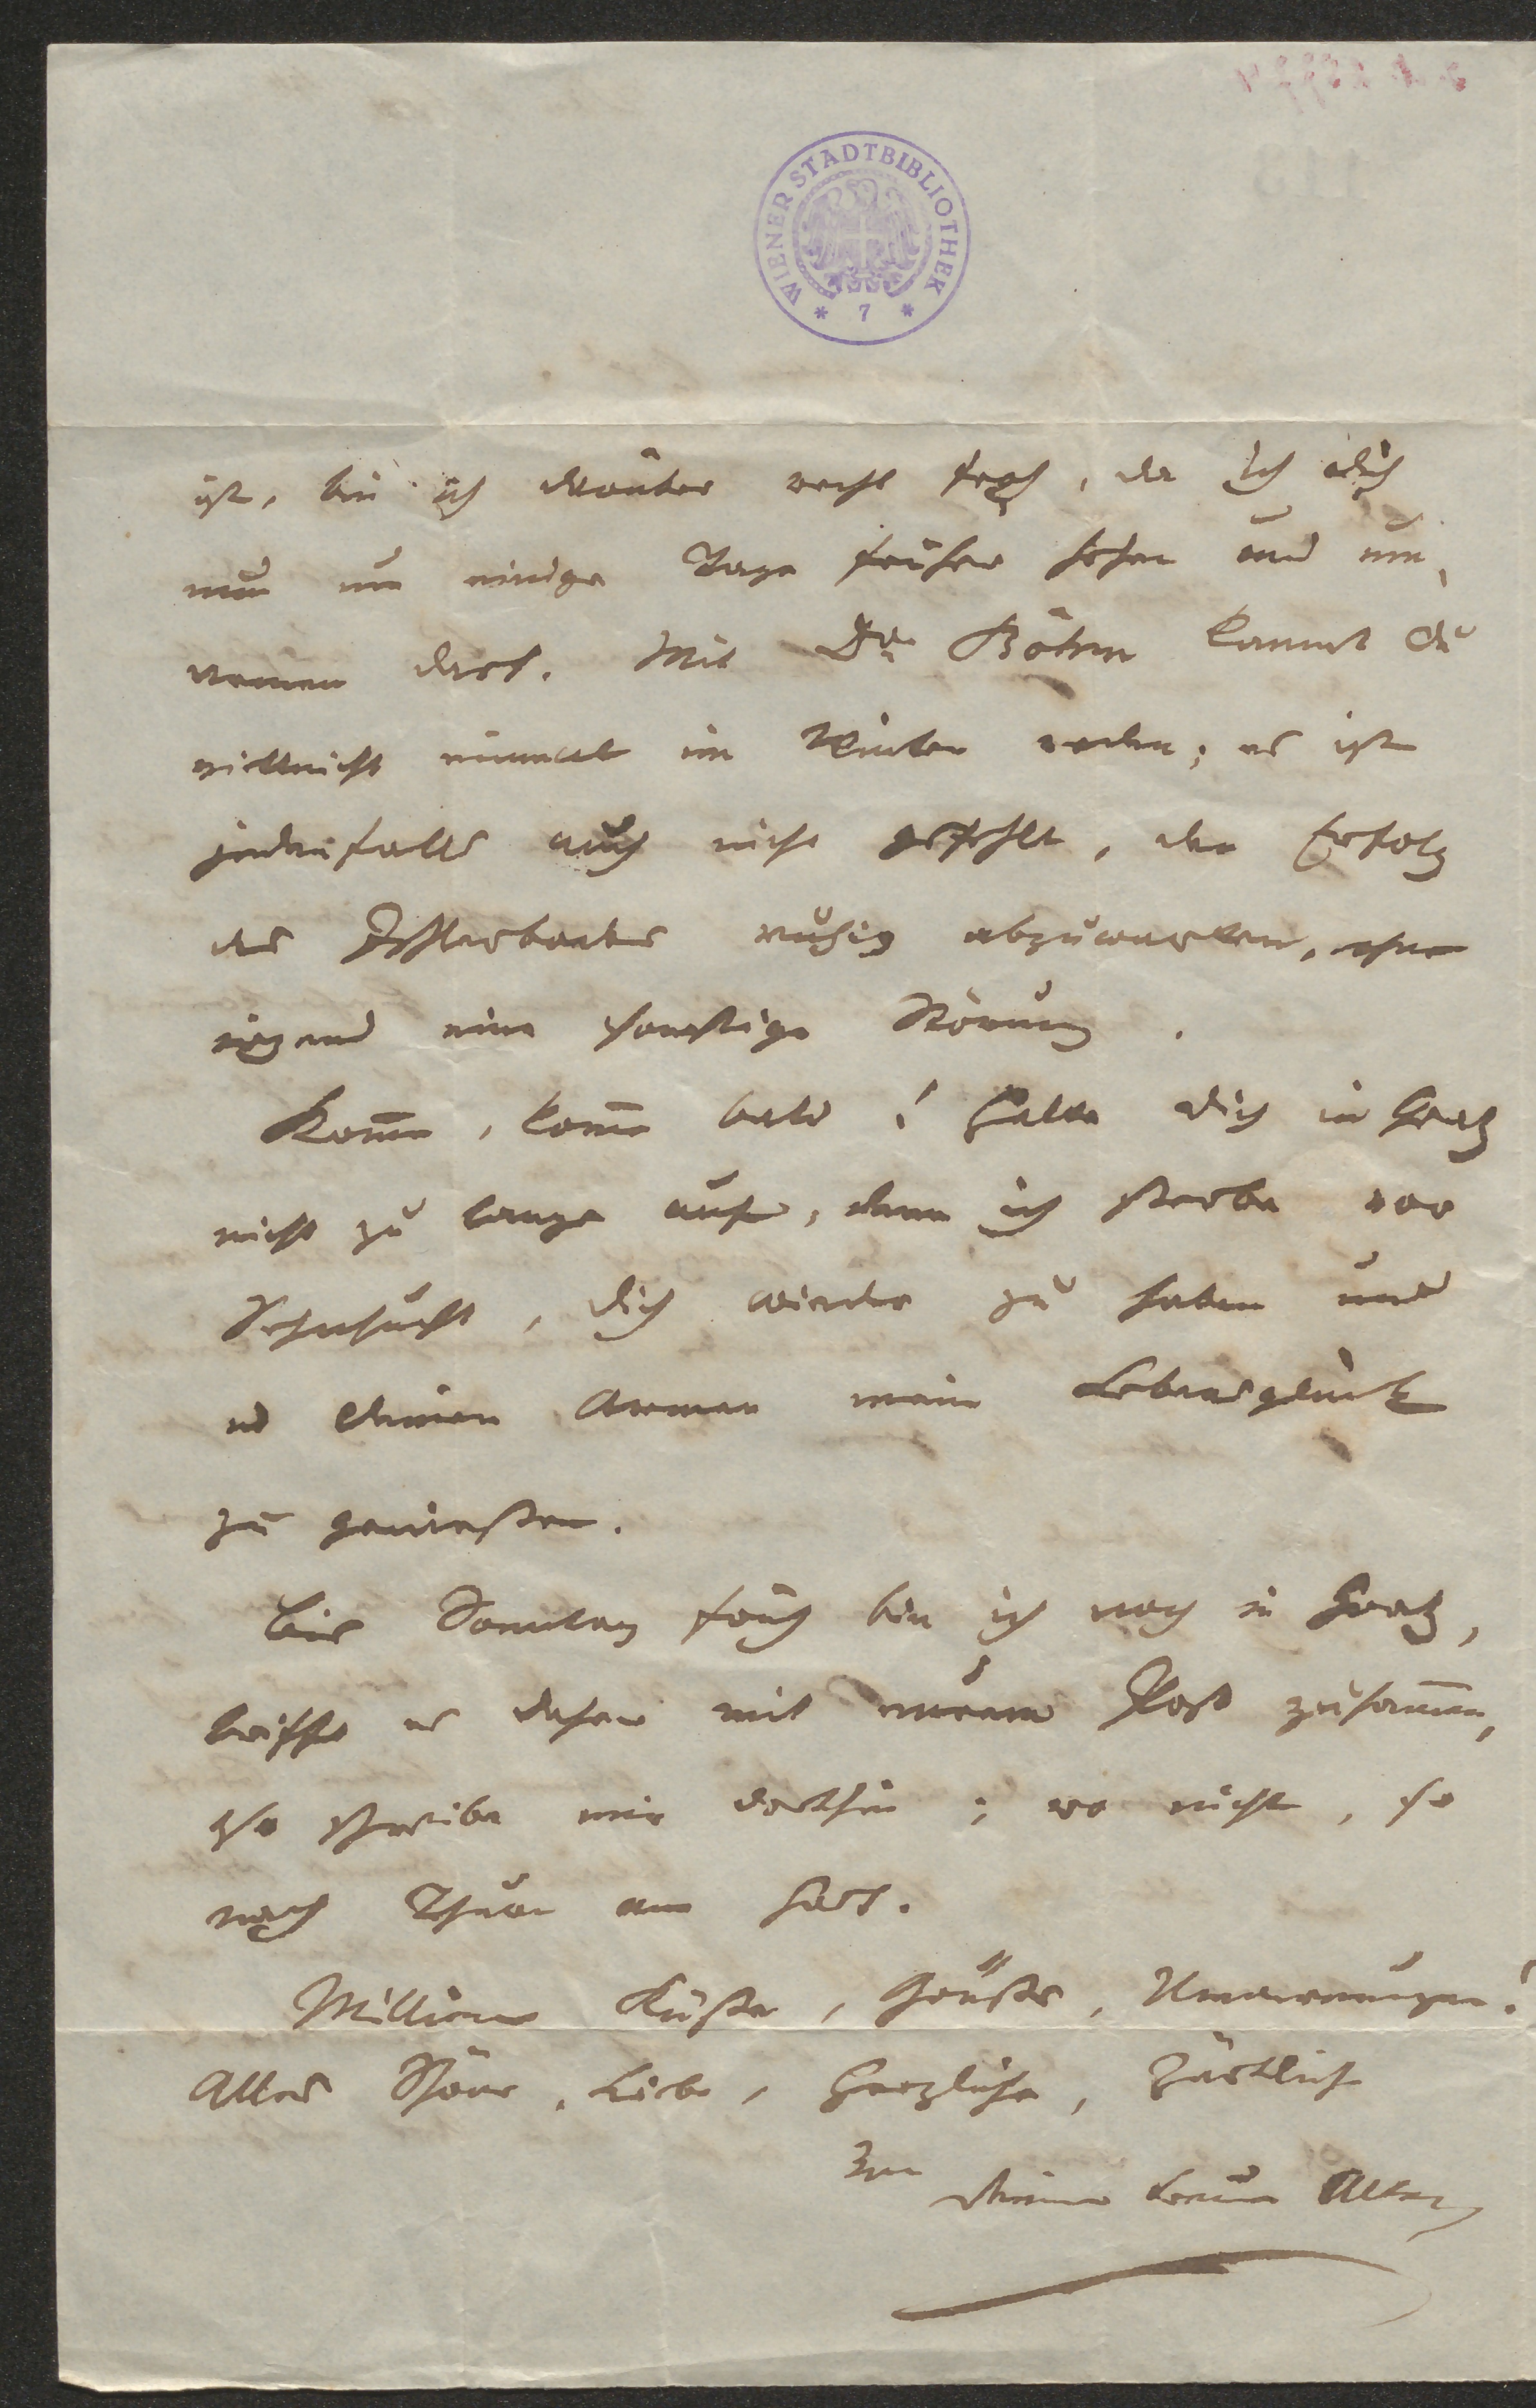 WIENER STADTBIBLIOTHEK
* 7 *
ist, bin ich darüber recht froh, da ich dich
nun um einige Tage früher sehen und um-
armen darf. Mit Dr Böhm kannst du
vielleicht einmal im Winter reden; es ist
jedenfalls auch nicht gefehlt, den Erfolg
des Ischlerbades ruhig abzuwarten, ohne
irgend eine sonstige Störung.
Komm, komm bald! Halte dich in Gratz
nicht zu lange auf, denn ich sterbe vor
Sehnsucht, dich wieder zu haben und
in deinen Armen mein Lebensglück
zu genießen.
Bis Sonntag früh bin ich noch in Gratz,
trifft es daher mit der Post zusammen,
so schreibe mir dorthin; wo nicht, so
nach Thurn am Hart.
Millionen Küße, Grüße, Umarmungen!
Alles Schöne, Liebe, Herzliche, Zärtliche
von deinem treuen Alten